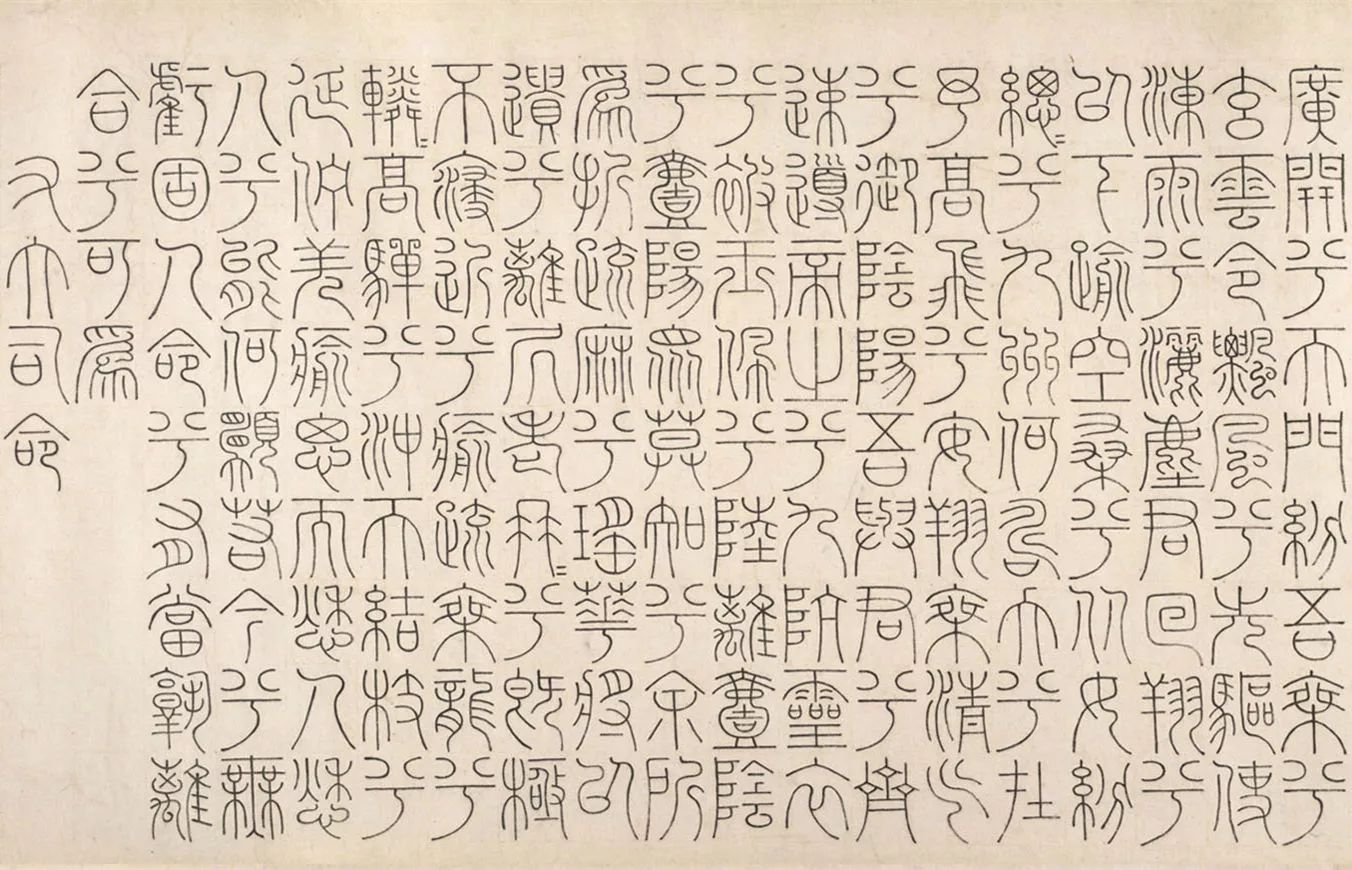 廣開兮天門紛吾乘兮
玄雲令飄風兮先驅使
涷雨兮灑塵君回翔兮
以下踰空桑兮从女紛
總〻兮九州何壽夭兮在
予高飛兮安翔乘清气
兮御陰陽吾與君兮齊
速導帝之兮九阬靈衣
兮被玉佩兮陸離壹陰
兮壹陽眾莫知兮余所
為折疏麻兮瑤華將以
遺兮離居老冉〻兮既極
不寖近兮瘉疏乘龍兮
轔〻高驒兮沖天結枝兮
延佇羌瘉思而愁人愁
人兮能何願若今兮無
虧固人命兮有當孰離
合兮可為
右大司命